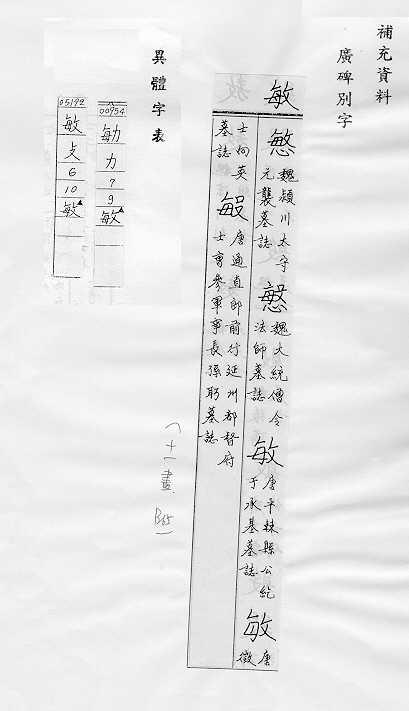 補充資料
廣碑別字
敏
慜
魏潁川太守
元襲墓誌
魏大統僧令
法師墓誌
敏
唐平棘縣公紇
干承基墓誌
敏
唐
徵
士柯英
墓誌
唐通直郎前行延州都督府
士曹參軍事長孫
墓誌
(十一畫
異體字表
00954
勄
力
7
9
敏▲
05192
敏
攴
6
10
敏▲